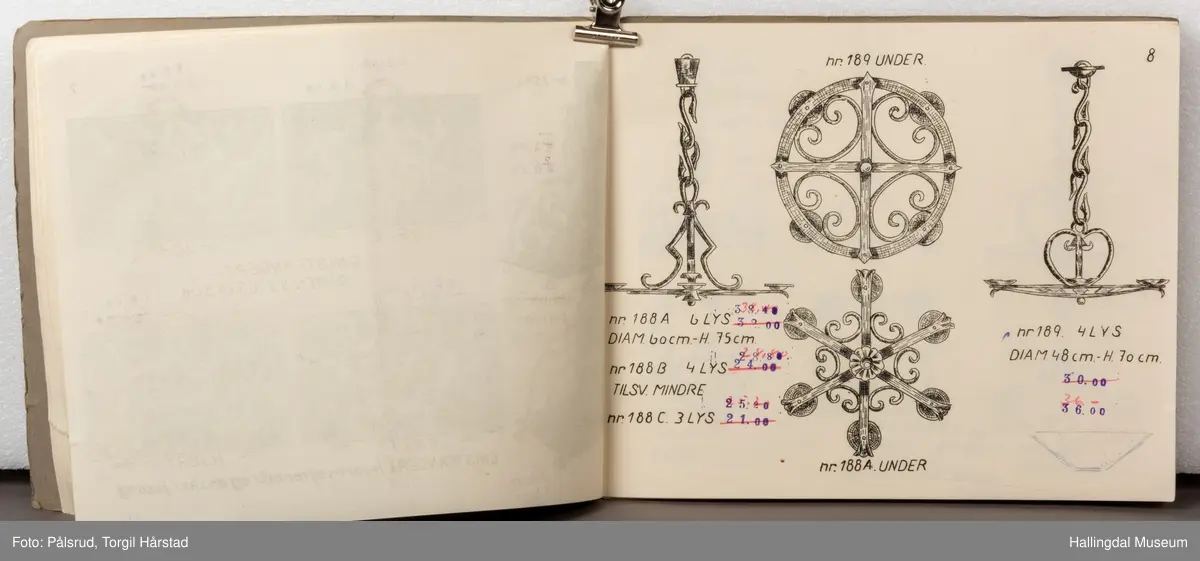 8
nr. 189 UNDER.
nr. 188A 6 LYS 38.40
32.00
DIAM. 60cm.-H. 75cm.
28.80
nr. 188B 4 LYS 24.00
TILSV. MINDRE
25.20
nr. 188C. 3 LYS 21.00
nr. 188A. UNDER
nr. 189. 4 LYS
DIAM 48cm.-H. 70cm.
30.00
36.00
Foto: Pålsrud, Torgil Hårstad
Hallingdal Museum